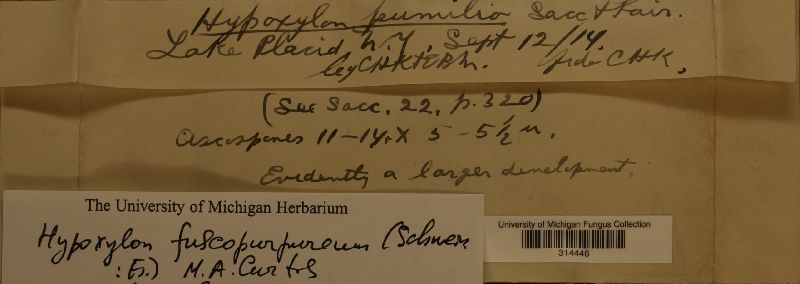 Hypoxylon pumilio Sacc & Fair.
Lake Placid, N.Y., Sept 12/14
leg CHK + EBM. fide CHK.
(See Sacc. 22, p. 320)
Ascospores 11-14 x 5 - 5½ u.
Evidently a larger development.
The University of Michigan Herbarium
Hypoxylon fuscopurpureum (Schwein
: Fr.) M.A. Curtis
University of Michigan Fungus Collection
314446